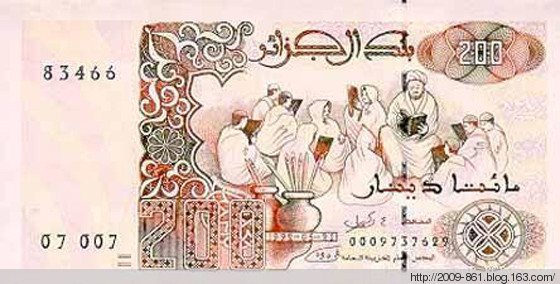 بنك الجزائر
200
83466
مائتا دينار
200
07 007
0009737629
http://2009-861.blog.163.com/